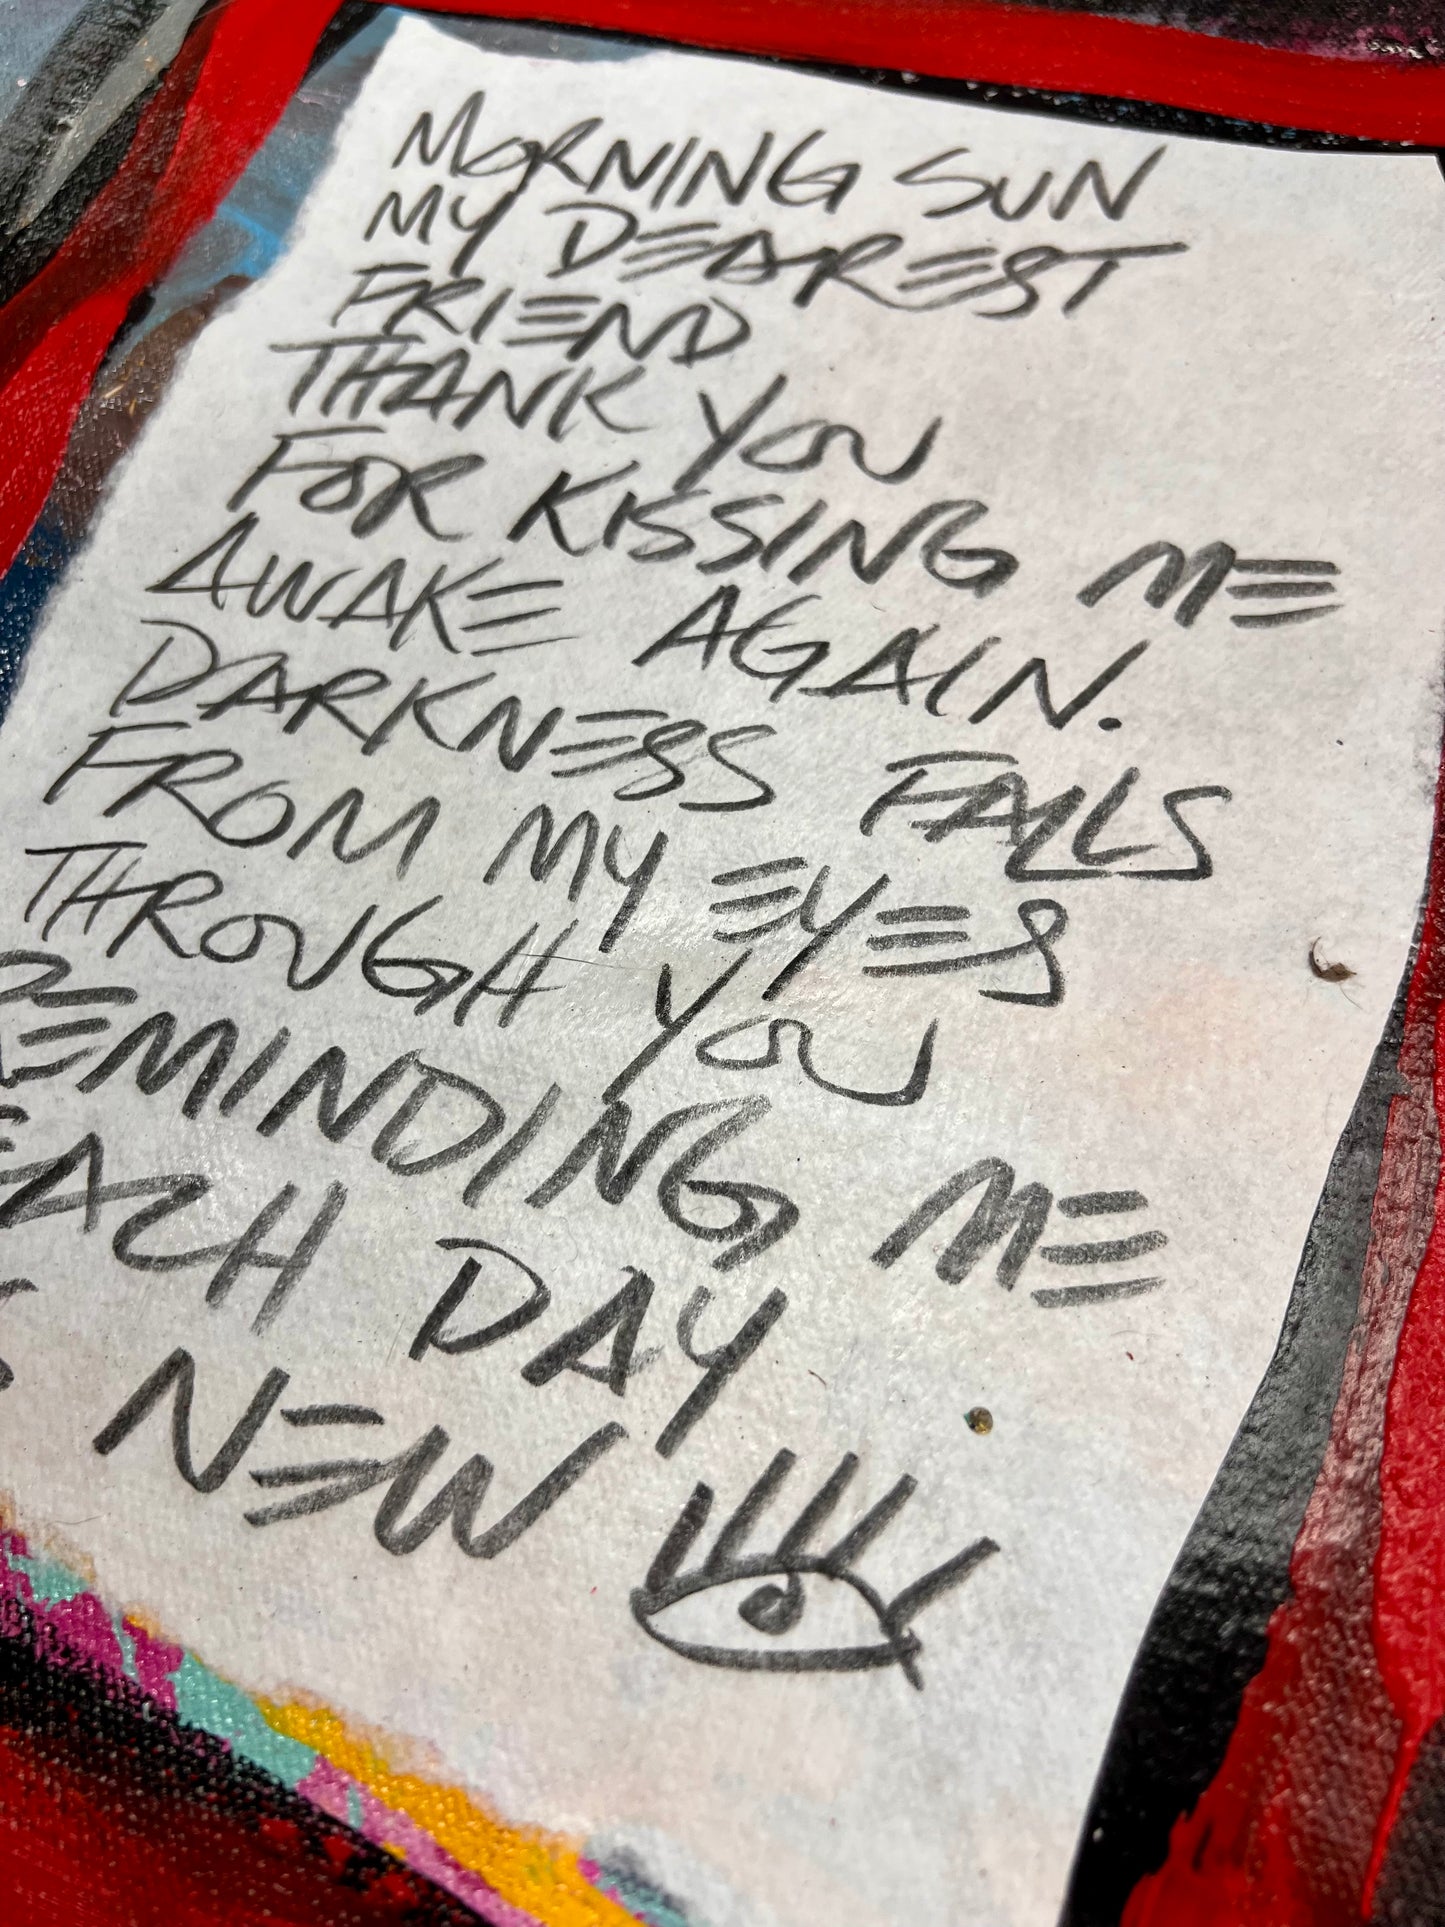 MORNING SUN
MY DEAREST
FRIEND
THANK YOU
FOR KISSING ME
AWAKE AGAIN.
DARKNESS FALLS
FROM MY EYES
THROUGH YOU
REMINDING ME
EACH DAY
NEW